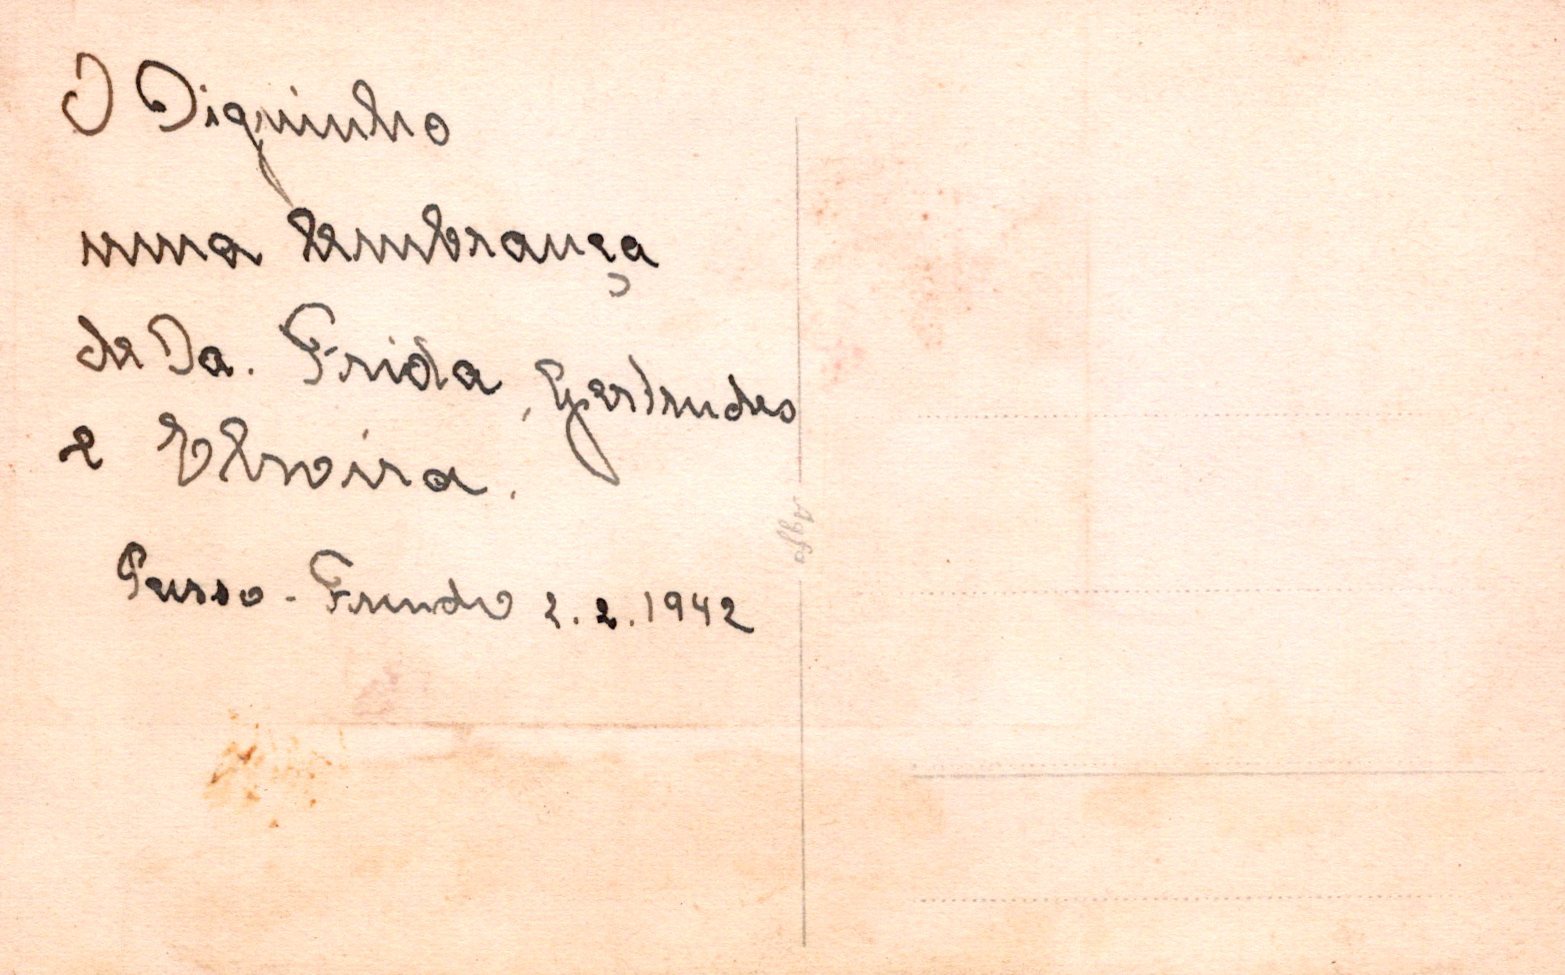 O Diquinho
uma lembrança
de Da. Frida, Gertrudes
e Elvira.
Passo-Fundo 2.2.1942
Agfa